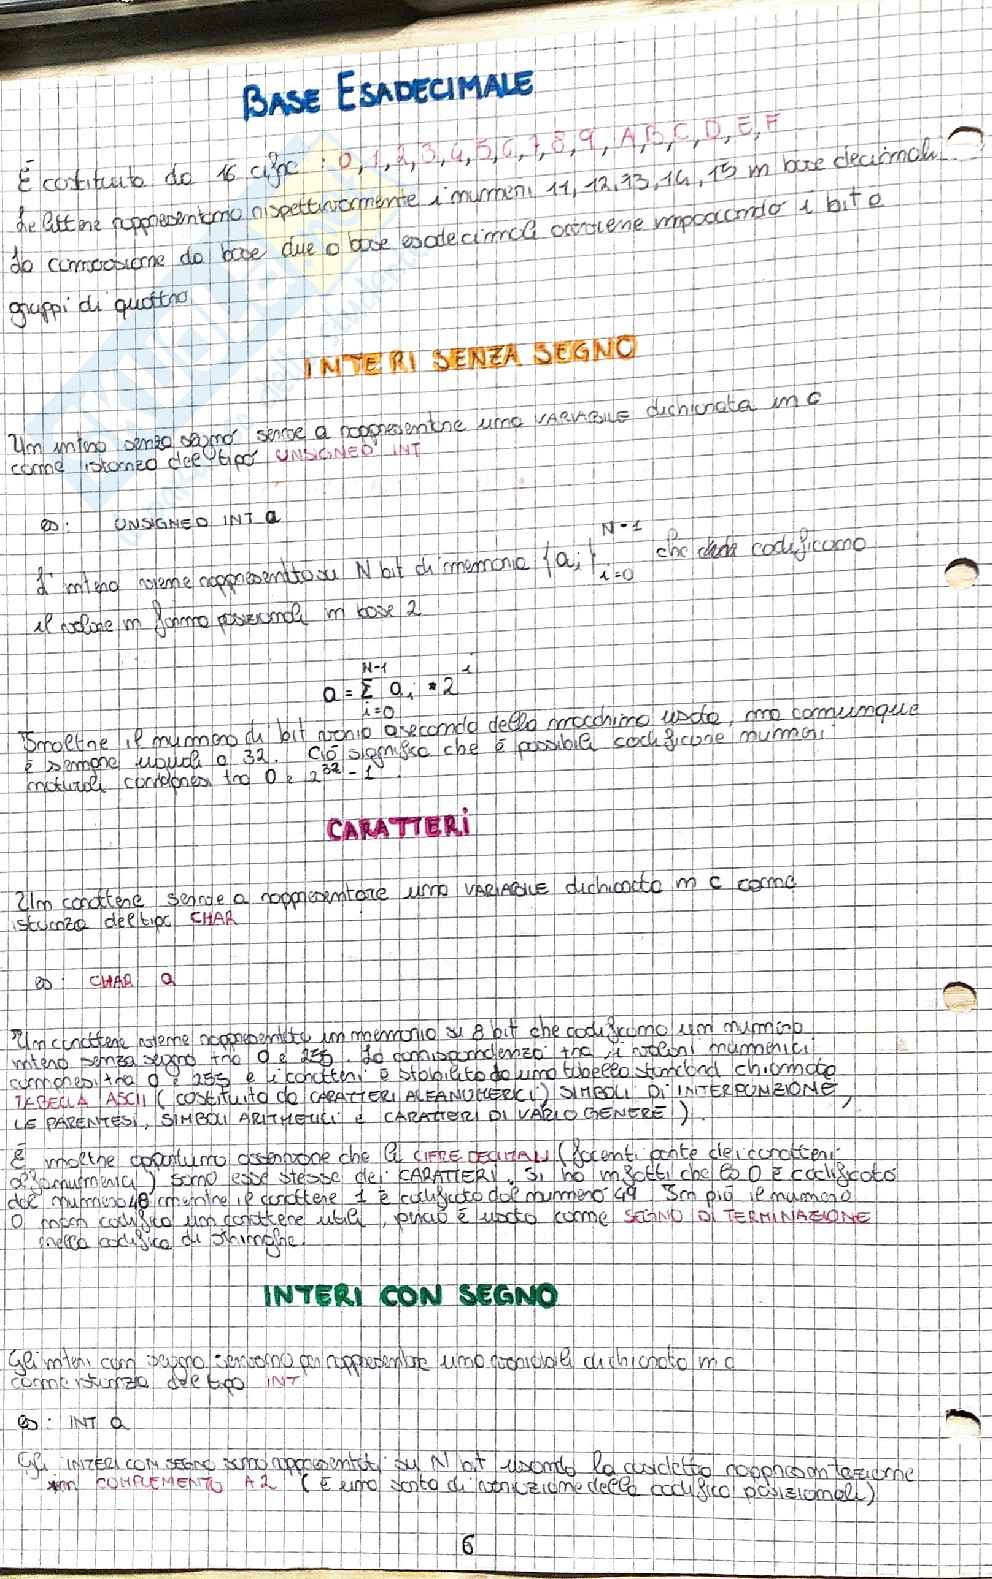 BASE ESADECIMALE
È costituita da 16 cifre : 0,1,2,3,4,5,6,7,8,9,A,B,C,D,E,F
Le lettere rappresentano rispettivamente i numeri 11,12,13,14,15 in base decimale.
La conversione da base due a base esadecimale avviene impaccando i bit a
gruppi di quattro
INTERI SENZA SEGNO
Un intero senza segno serve a rappresentare una VARIABILE dichiarata in C
come istanza del tipo UNSIGNED INT
es: UNSIGNED INT a
L'intero viene rappresentato su N bit di memoria {a_i}_{i=0}^{N-1} che codificano
il valore in forma posizionale in base 2
a = Σ_{i=0}^{N-1} a_i * 2^i
Inoltre il numero di bit varia a seconda della macchina usata, ma comunque
è sempre uguale a 32. Ciò significa che è possibile codificare numeri
naturali compresi tra 0 e 2^32 - 1.
CARATTERI
Un carattere serve a rappresentare una VARIABILE dichiarata in C come
istanza del tipo CHAR
es: CHAR a
Un carattere viene rappresentato in memoria su 8 bit che codificano un numero
intero senza segno tra 0 e 255. La corrispondenza tra i valori numerici
compresi tra 0 e 255 e i caratteri è stabilita da una tabella standard chiamata
TABELLA ASCII (COSTITUITA da CARATTERI ALFANUMERICI, SIMBOLI DI INTERPUNZIONE,
LE PARENTESI, SIMBOLI ARITMETICI e CARATTERI DI VARIO GENERE).
È inoltre opportuno osservare che le CIFRE DECIMALI (facenti parte dei caratteri
alfanumerici) sono esse stesse dei CARATTERI. Si ha infatti che lo 0 è codificato
dal numero 48 mentre il carattere 1 è codificato dal numero 49. In più il numero
0 non codifica un carattere utile, perciò è usato come SEGNO DI TERMINAZIONE
nella codifica di stringhe.
INTERI CON SEGNO
Gli interi con segno servono per rappresentare una variabile dichiarata in C
come istanza del tipo INT
es: INT a
Gli INTERI CON SEGNO sono rappresentati su N bit usando la cosidetta rappresentazione
in COMPLEMENTO A 2 (È una sorta di variazione della codifica posizionale)
6